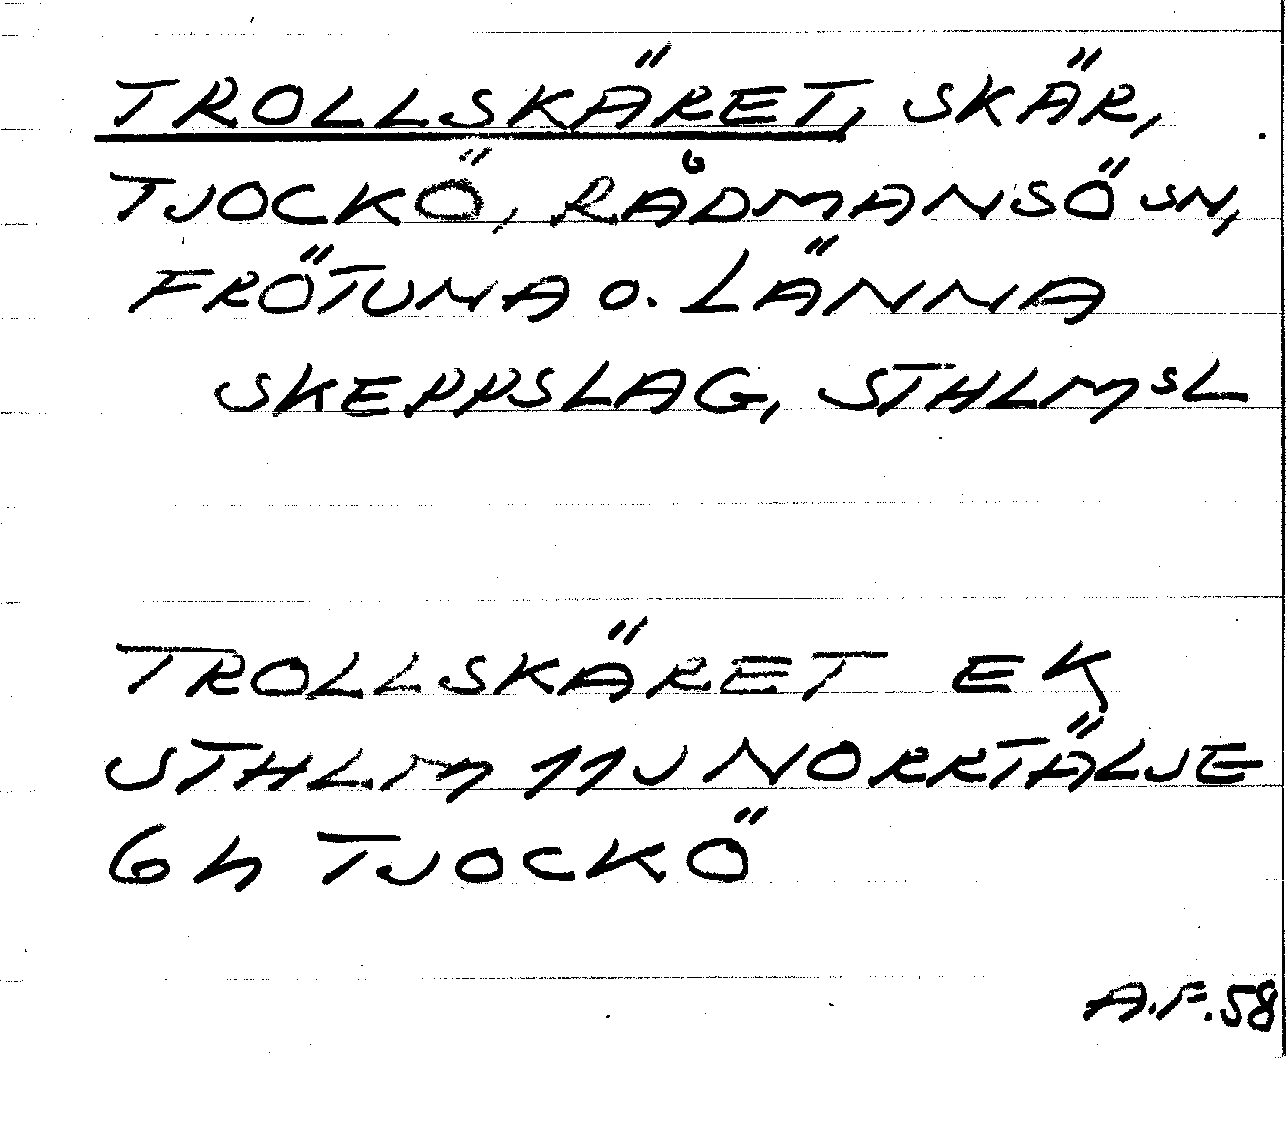 TROLLSKÄRET, SKÄR,
TJOCKÖ, RÅDMANSÖ SN,
FRÖTUNA o. LÄNNA
SKEPPSLAG, STHLMSL
TROLLSKÄRET EK
STHLM 11J NORRTÄLJE
6h TJOCKÖ
A.F.58